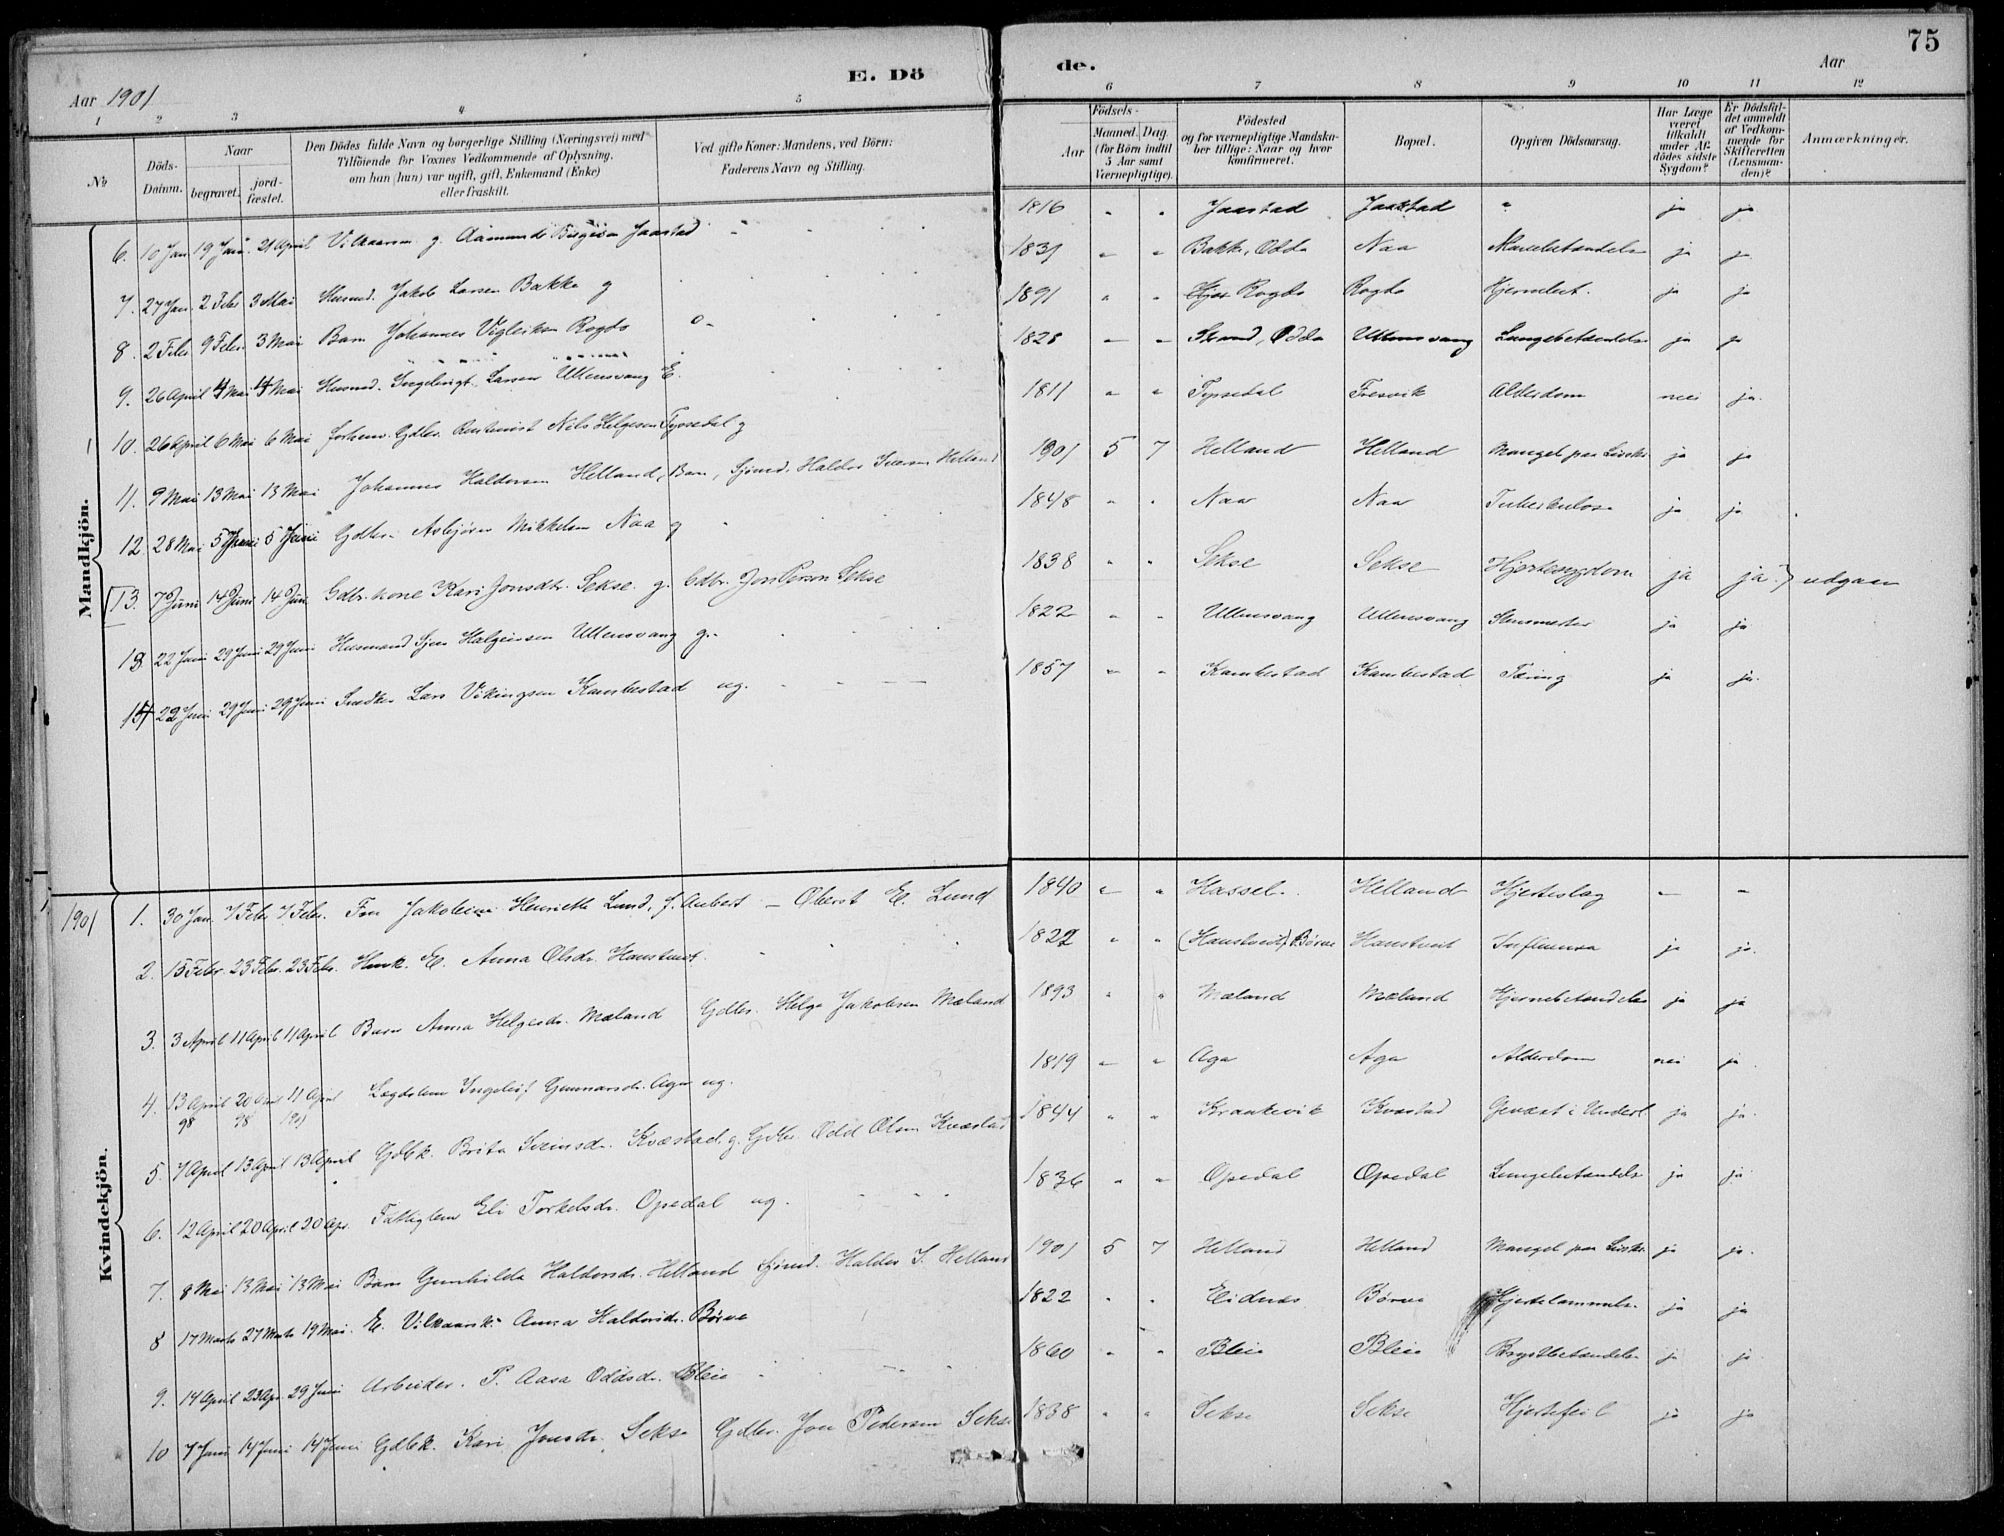 75
E. Dö de.
Aar 1901
Aar
1 2 3 4 5 6 7 8 9 10 11 12
№
Döds-Datum.
Naar
begravet.
jord-fæstet.
Den Dödes fulde Navn og borgerlige Stilling (Næringsvei) med
Tilföiende for Voxnes Vedkommende af Oplysning,
om han (hun) var ugift, gift, Enkemand (Enke)
eller fraskilt.
Ved gifte Koner: Mandens, ved Börn:
Faderens Navn og Stilling.
Födsels-
Aar
Maaned. Dag.
(for Börn indtil
5 Aar samt
Værnepligtige).
Födested
og for værnepligtige Mandskaber tillige: Naar og hvor
konfirmeret.
Bopæl.
Opgiven Dödsaarsag.
Har Læge været tilkaldt under Afdödes sidste Sygdom?
Er Dödsfaldet anmeldt af Vedkommende for Skifteretten (Lensmanden)?
Anmærkninger.
Mandkjön.
6. 10 Jan. 19 Jan. 21 April Vilkaarsm. g. Aamund Jaastad 1816 " " Jaastad Jaastad " ja ja
7. 27 Jan. 2 Febr. 3 Mai Husmd. Jakob Larsen Bakke g 1831 " " Bakke, Odda Naa ja ja
8. 2 Febr. 9 Febr. 3 Mai Barn Johannes Vigleiksen Rogde 1891 " " Rogde Rogde Hjernebet. ja ja
9. 26 April 4 Mai 4 Mai Husmd. Larsen Ullensvang E. 1828 " " Strand, Odda Ullensvang Lungebetændelse ja ja
10. 26 April 6 Mai 6 Mai forhenv. Gdbr. Nils Helgesen Tyssedal g 1811 " " Tyssedal Fresvik Alderdom nei ja.
11. 9 Mai 13 Mai 13 Mai Johannes Haldorsen Helland, Barn, Sjömd. Haldor Iversen Helland 1901 5 7 Helland Helland Mangel paa Livskr. ja ja
12. 28 Mai 5 Juni 5 Juni Gdbr. Asbjörn Mikkelsen Naa g 1848 " " Naa Naa Tuberkulose ja ja
13. 7 Juni 14 Juni 14 Juni Gdbr. kone Kari Jonsdtr. Sekse. g. Gdbr. Jon Person Sekse 1838 " " Sekse Sekse Hjertesygdom ja ja } udgaar
13. 22 Juni 29 Juni 29 Juni Husmand Sjur Ullensvang g. 1822 " " Ullensvang Ullensvang ja ja
14 22 Juni 29 Juni 29 Juni Snedker Lars Vikingsen Kambestad ug. 1857 " " Kambestad Kambestad Tæring ja ja.
Kvindekjön.
1901 1. 30 Jan. 7 Febr. 7 Febr. Fru Jakobine Henriette Lund, f. Aubert – Oberst E. Lund 1840 " " Hassel. Helland Hjerteslag – –
2. 15 Febr. 23 Febr. 23 Febr. E. Anna Olsdr. Haustveit. 1822 " " (Haustveit) Børve Haustveit Influensa ja ja.
3. 3 April 11 April 11 April Barn Anna Helgesdr. Mæland Gdbr. Helge Jakobsen Mæland 1893 " " Mæland Mæland Hjernebetændelse ja ja
4. 13 April 98 20 April 98 11 April 1901 Lægdslem Ingeleif Gunnarsdr. Aga ug. 1819 " " Aga Aga Alderdom nei ja
5. 7 April 13 April 13 April Gdbk. Brita Sveinsdr. Kvæstad. g. Gdbr. Odd Olsen Kvæstad 1844 " " Krantevik Kvæstad Gevæxt i Underl. ja ja.
6. 12 April 20 April 20 Apr. Fattiglem Eli Torkelsdr. Opedal ug. 1836 " " Opedal Opedal Lungebetændelse ja ja
7. 8 Mai 13 Mai 13 Mai Barn Gunhilda Haldorsdr. Helland Sjömd. Haldor I. Helland 1901 5 7 Helland Helland Mangel paa Livskr. ja ja.
8 17 Marts 27 Marts 19 Mai. E. Vilkaarsk. Anna Haldorsdr. Børve 1822 " " Eidnes Børve Hjertelammelse ja ja
9. 14 April 23 Apr. 29 Juni Arbeider. P. Aasa Oddsdr. Bleie 1860 " " Bleie Bleie Brystbetændelse ja ja.
10 7 Juni 14 Juni 14 Juni Gdbk. Kari Jonsdr. Sekse Gdbr. Jon Pedersen Sekse 1838 " " Sekse Sekse Hjertefeil ja ja